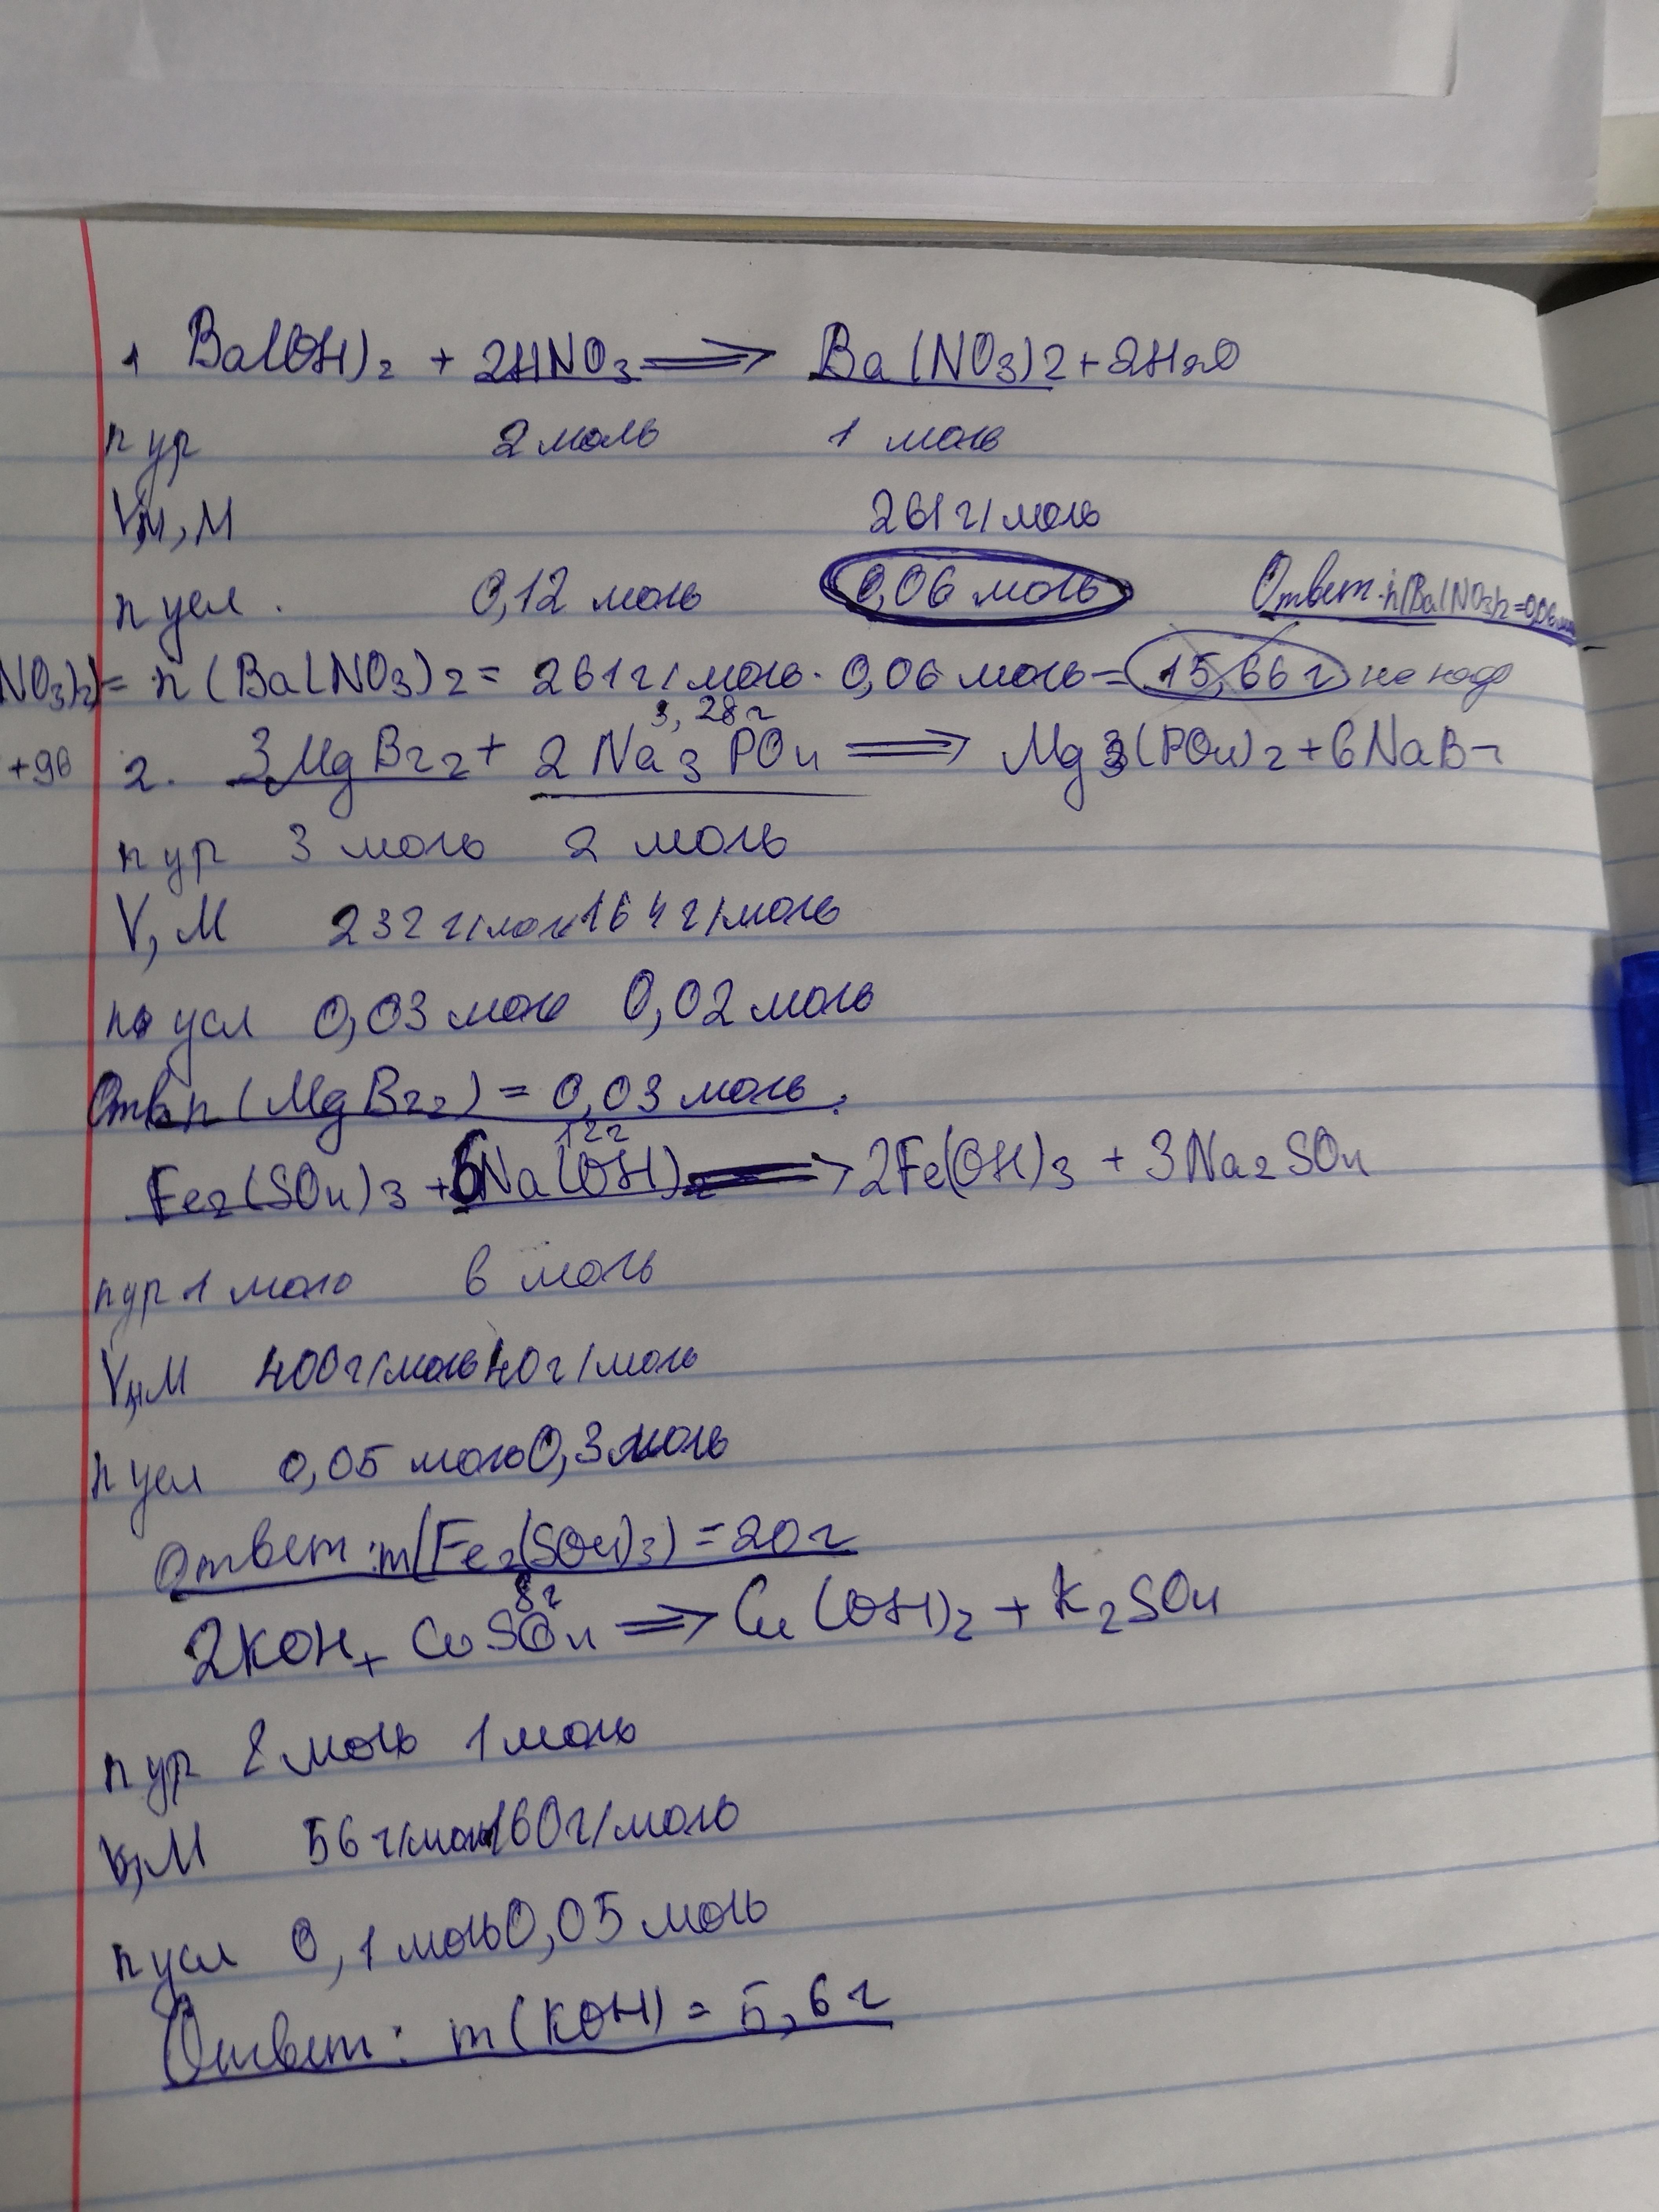 1 Ba(OH)2 + 2HNO3 ⟹ Ba(NO3)2 + 2H2O
n ур 2 моль 1 моль
Vм, M 261 г/моль
n усл. 0,12 моль 0,06 моль Ответ: n(Ba(NO3)2 = 0,06 моль
NO3)2) = n (Ba(NO3)2 = 261 г/моль · 0,06 моль = 15,66 г не надо
3,28 г
+96 2. 3MgBr2 + 2Na3PO4 ⟹ Mg3(PO4)2 + 6NaBr
n ур 3 моль 2 моль
V, M 232 г/мол 164 г/моль
n усл 0,03 моль 0,02 моль
Отв: n (MgBr2) = 0,03 моль.
12 г
Fe2(SO4)3 + 6Na(OH) ⟹ 2Fe(OH)3 + 3Na2SO4
n ур 1 моль 6 моль
Vм, M 400 г/моль 40 г/моль
n усл 0,05 моль 0,3 моль
Ответ: m(Fe2(SO4)3) = 20 г
8 г
2KOH + CuSO4 ⟹ Cu(OH)2 + K2SO4
n ур 2 моль 1 моль
Vм, M 56 г/мол 160 г/моль
n усл 0,1 моль 0,05 моль
Ответ: m(KOH) = 5,6 г